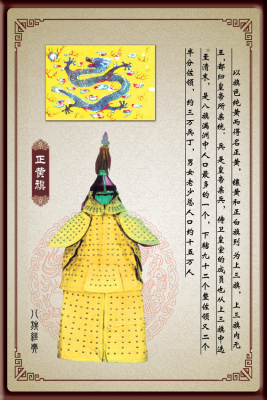 以旗色纯黄而得名正黄，镶黄和正白旗列为上三旗，上三旗内无
王，都归皇帝所亲统，兵是皇帝亲兵，侍卫皇室的成员也从上三旗中选
至清末，是八旗满洲中人口最多的一个，下辖九十二个整佐领又二个
半分佐领，约三万兵丁，男女老少总人口约十五万人
正黄旗